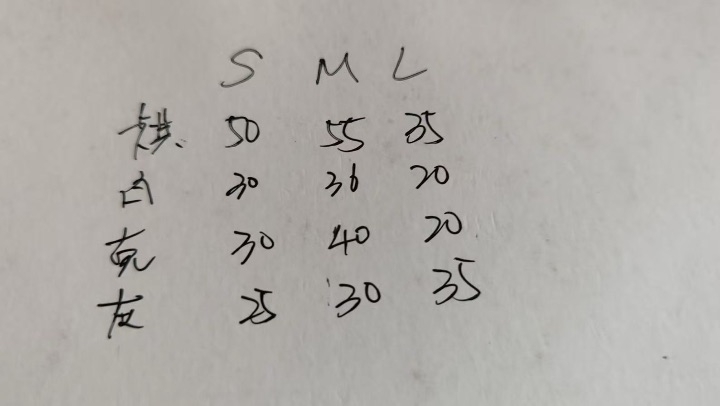 S M L
50 55 35
白 30 36 20
30 40 20
25 30 35